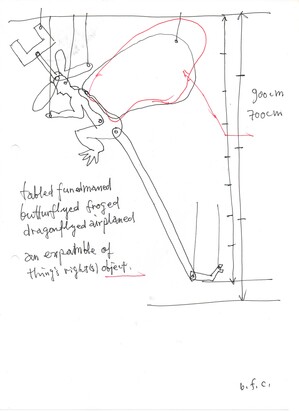 900cm
700cm
tabled fundmaned
butturflyed froged
dragonflyed airplaned
an expamble of
thing's right(s) object.
b.f.c.